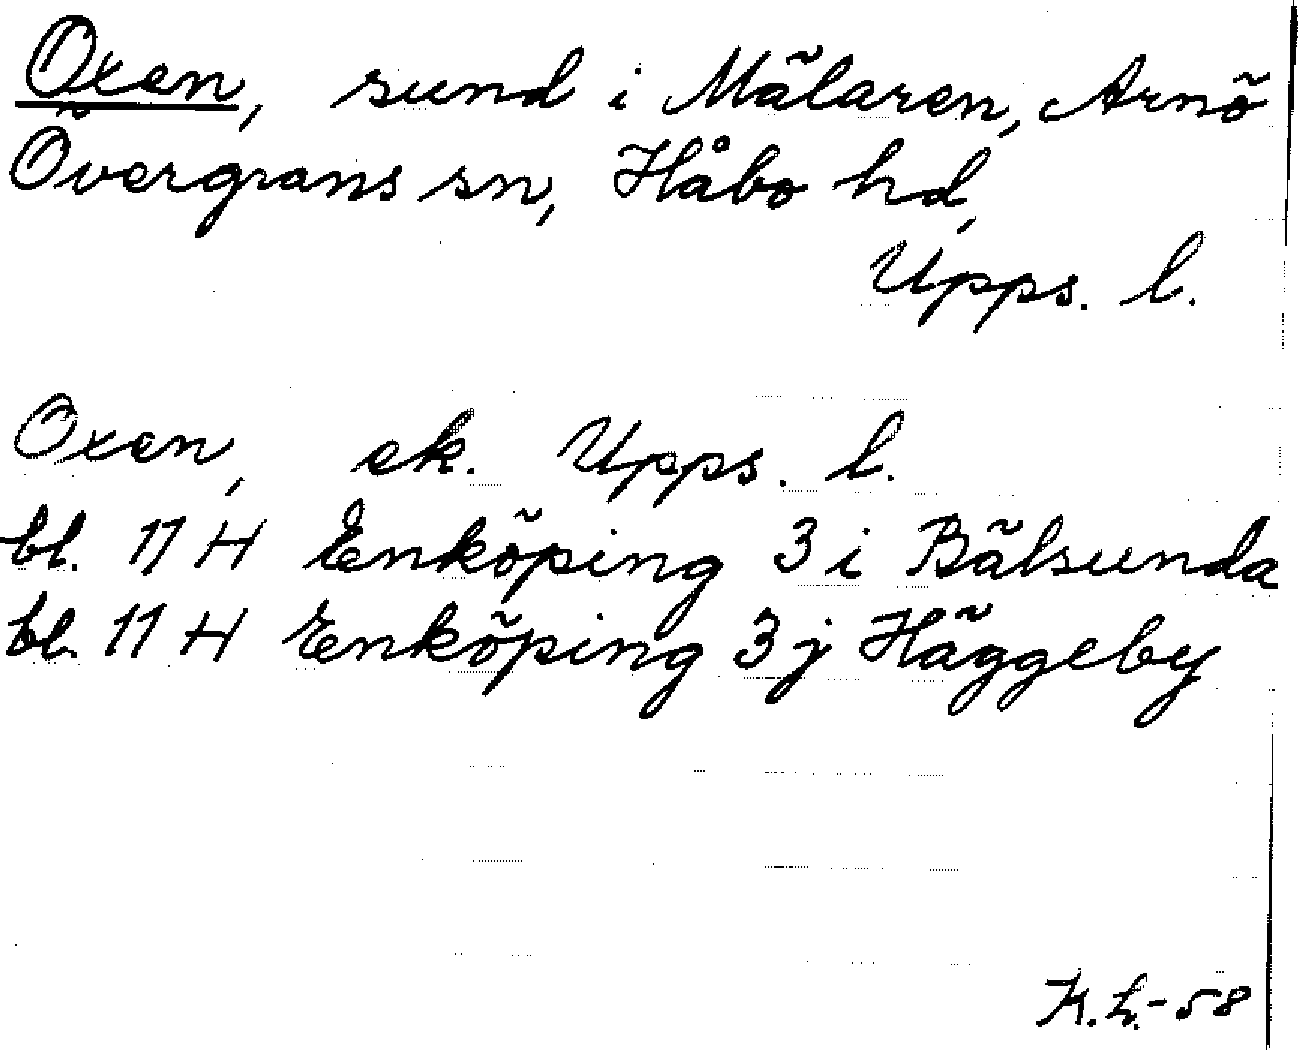 Oxen, sund i Mälaren, Arnö
Övergrans sn, Håbo hd,
Upps. l.
Oxen, ek. Upps. l.
bl. 11 H Enköping 3 i Bälsunda
bl. 11 H Enköping 3 j Häggeby
K.L.-58